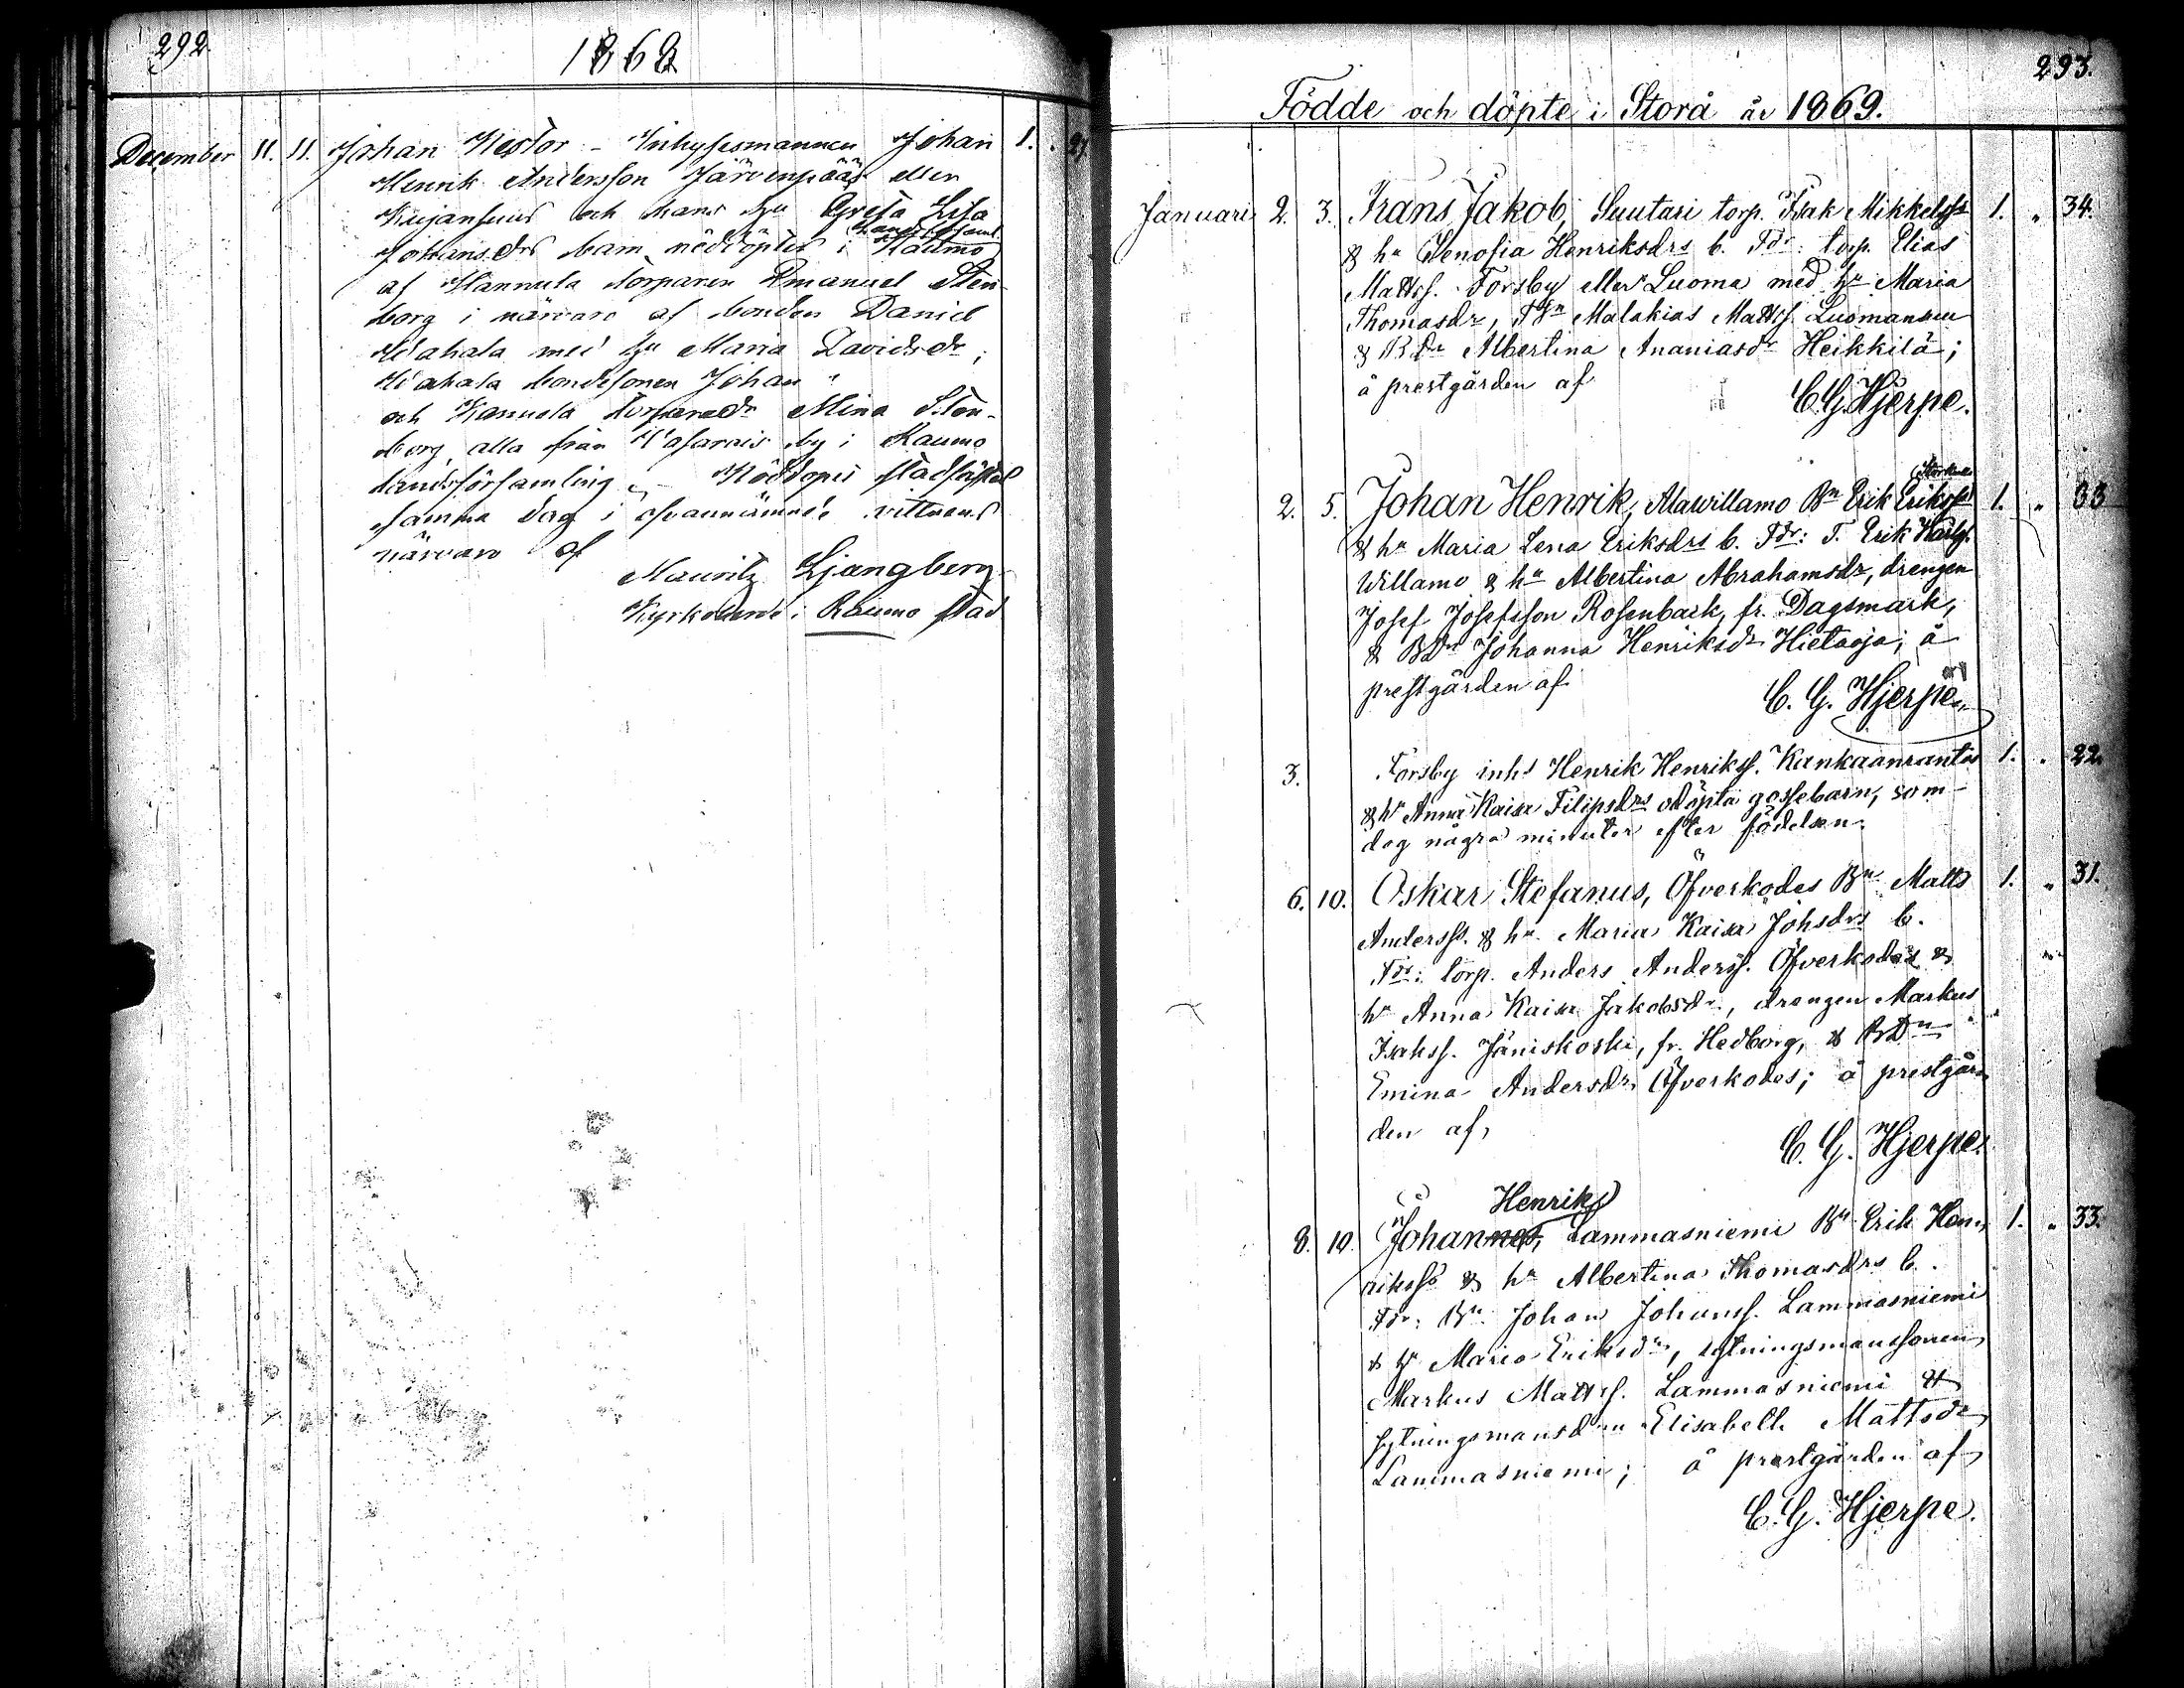 292.
1868
December 11. 11. Johan Nestor - Inhysesmannen Johan 1. "
Henrik Andersson Järvenpääs eller
Kujansuus och hans hu Greta Lisa
Johansdrs barn nöddöptes i Raumo
Landsförsaml.
af Hannula torparen Emanuel Sten-
borg i närvaro af bonden Daniel
med hu Maria Davidsdr;
bondesonen Johan
och Hannula Mina Sten-
borg, alla från by i Raumo
landsförsamling. Nöddopet stadfästad
samma dag i ofvannämnde vittnens
närvaro af
Mauritz Ljungberg
Kyrkoherde i Raumo stad
293.
Födde och döpte i Storå år 1869.
Januari 2. 3. Frans Jakob, Suutari torp. Isak Mikkelss. 1. " 34.
& hu Senofia Henriksdrs b. Fdr: torp. Elias
Mattss. Forsby eller Luoma med hu Maria
Thomasdr, Malakias Mattss. Luomansuu
& BDn Albertina Ananiasdr Heikkilä;
å prestgården af
C. G. Hjerpe.
2. 5. Johan Henrik, Alawillamo Bn Erik Erikss. 1. " 33
& hu Maria Lena Eriksdrs b. Fdr: T. Erik
Willamo & hu Albertina Abrahamsdr, drengen
Josef Josefsson Rosenback, fr. Dagsmark,
& BDn Johanna Henriksdr Hietaoja; å
prestgården af
C. G. Hjerpe.
3. Forsby inhs Henrik Henrikss. Kankaanrantas 1. " 22.
& hu Anna Kaisa Filipsdrs odöpta gossebarn, som
dog några minuter efter födelsen.
6. 10. Oskar Stefanus, Öfverkodes Bn Matts 1. " 31.
Anderss. & hu Maria Kaisa Johsdrs b.
Fdr: torp. Anders Anderss. Öfverkodes &
hu Anna Kaisa Jakobsdr, drengen Markus
Isakss. Jäniskoski, fr. Hedborg, & BDn
Emina Andersdr Öfverkodes; å prestgår-
den af
C. G. Hjerpe.
Henrik
8. 10. Johannes, Lammasniemi Bn Erik Hen- 1. " 33.
rikss & hu Albertina Thomasdrs b.
Fdr: Bn Johan Johanss. Lammasniemi
& hu Maria Eriksdr, sytningsmanssonen
Markus Mattss. Lammasniemi &
sytningsmansdn Elisabeth Mattsdr
Lammasniemi; å prestgården af
C. G. Hjerpe.